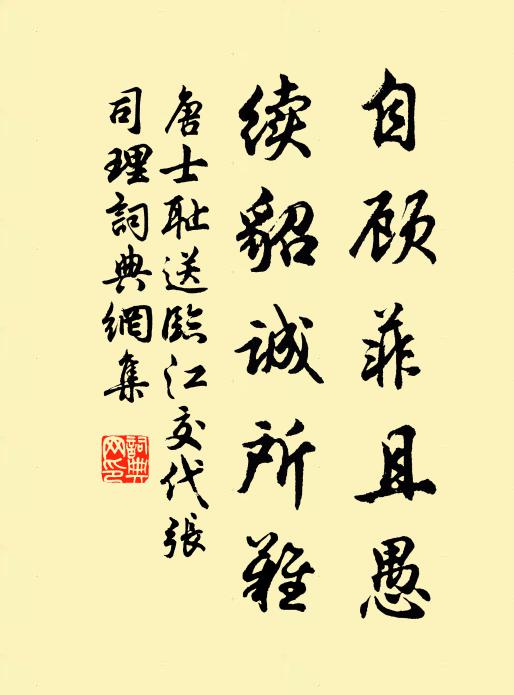 自顾菲且愚
续貂诚所難
唐士耻送臨江交代張
司理詞典網集
詞典网印